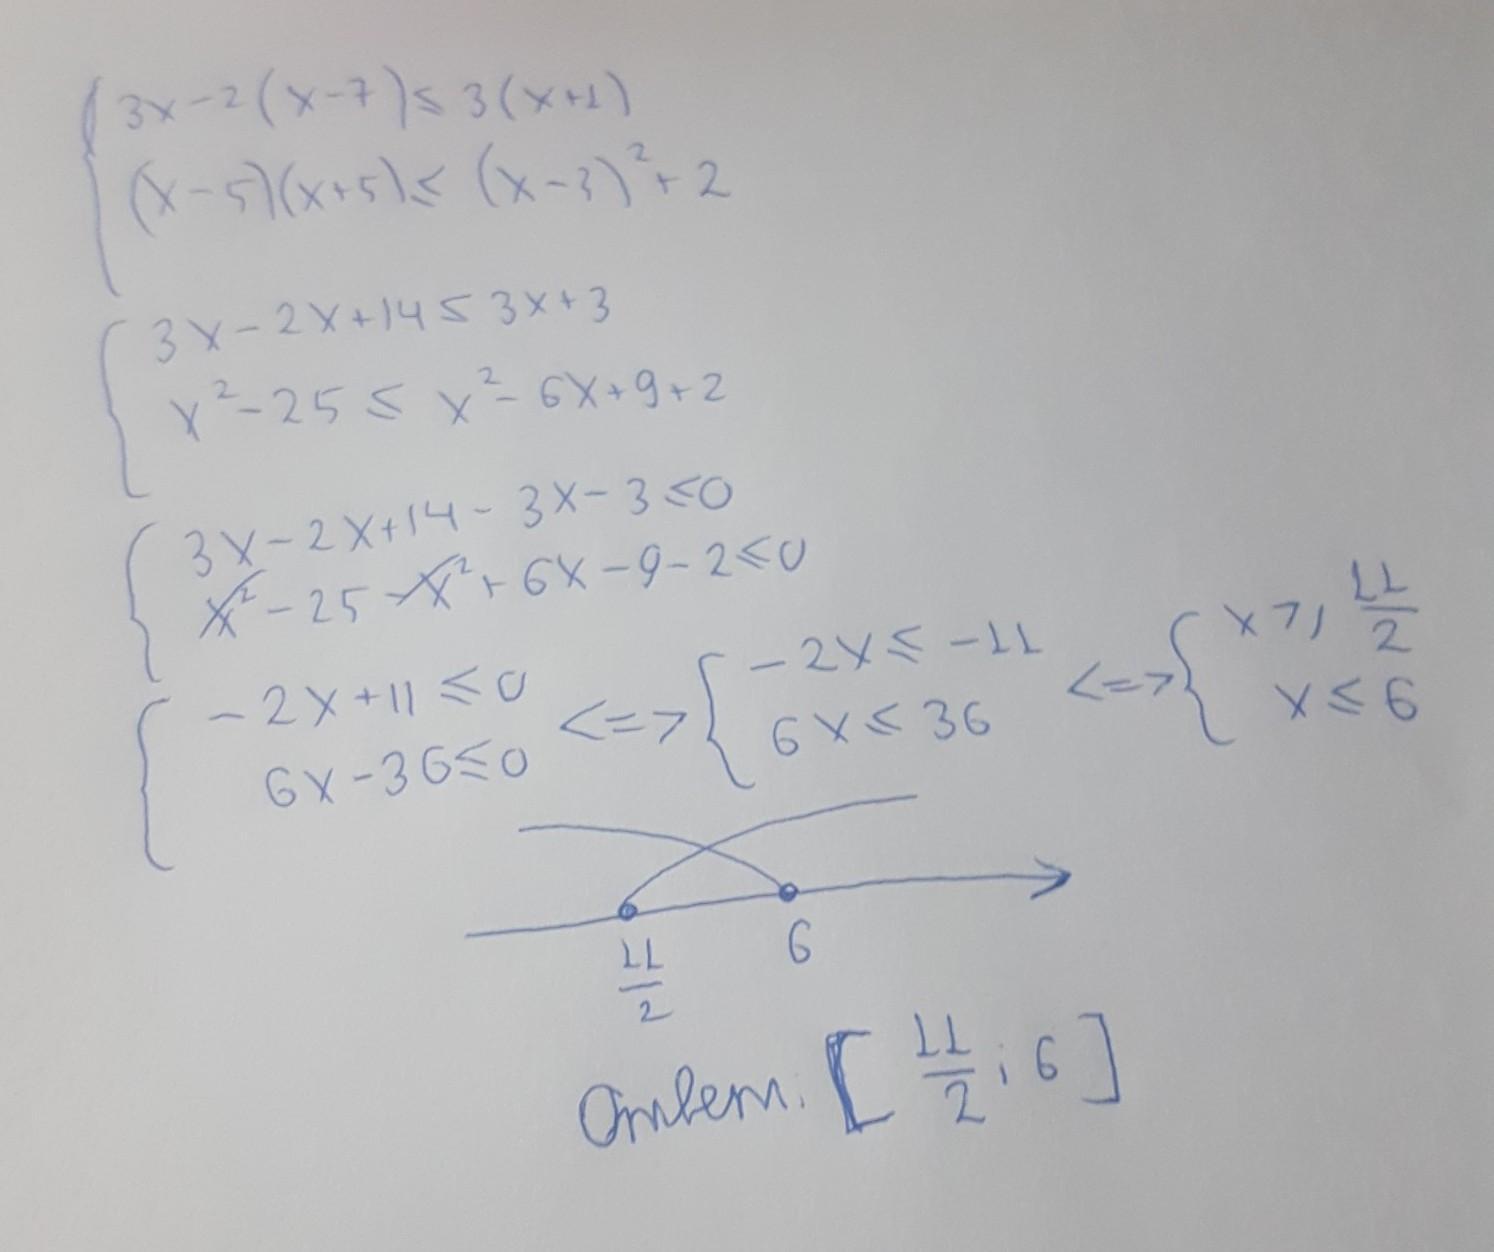 3x-2(x-7)≤3(x+1)
(x-5)(x+5)≤(x-3)²+2
3x-2x+14≤3x+3
x²-25≤x²-6x+9+2
3x-2x+14-3x-3≤0
x²-25-x²+6x-9-2≤0
-2x+11≤0 <=> -2x≤-11 <=> x≥11/2
6x-36≤0 6x≤36 x≤6
11/2 6
Ответ: [11/2; 6]